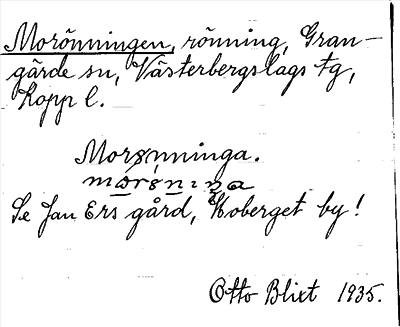 Morönningen, rönning, Gran-
gärde sn, Västerbergslags tg,
Kopp l.
Morønninga.
Se Jan Ers gård, Skoberget by!
Otto Blixt 1935.